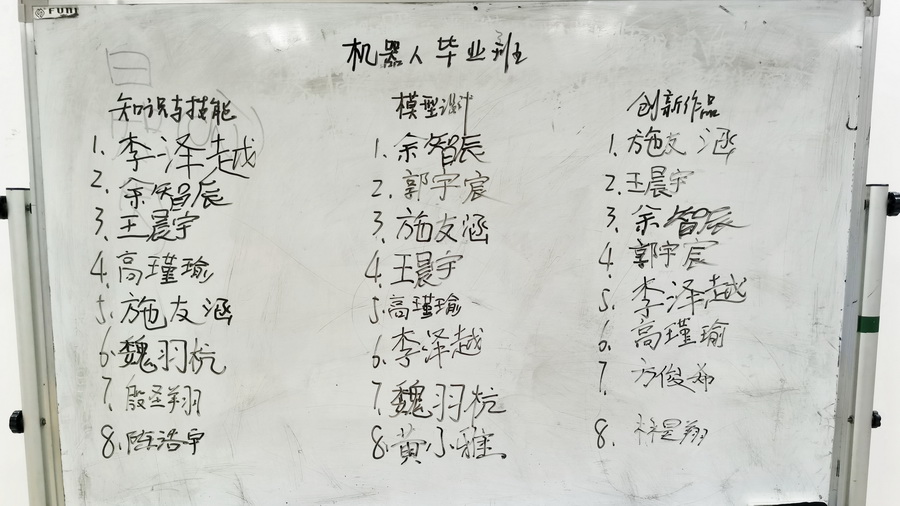 机器人毕业班
知识与技能
1. 李泽越
2. 余智辰
3. 王晨宇
4. 高瑾瑜
5. 施友涵
6. 魏羽杭
7. 殷圣翔
8. 陈浩宇
模型设计
1. 余智辰
2. 郭宇宸
3. 施友涵
4. 王晨宇
5. 高瑾瑜
6. 李泽越
7. 魏羽杭
8. 黄小雅.
创新作品
1. 施友涵
2. 王晨宇
3. 余智辰
4. 郭宇宸
5. 李泽越
6. 高瑾瑜
7. 方俊希
8.